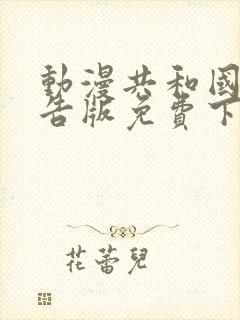 動漫共和國
告版免費下
花蕾兒